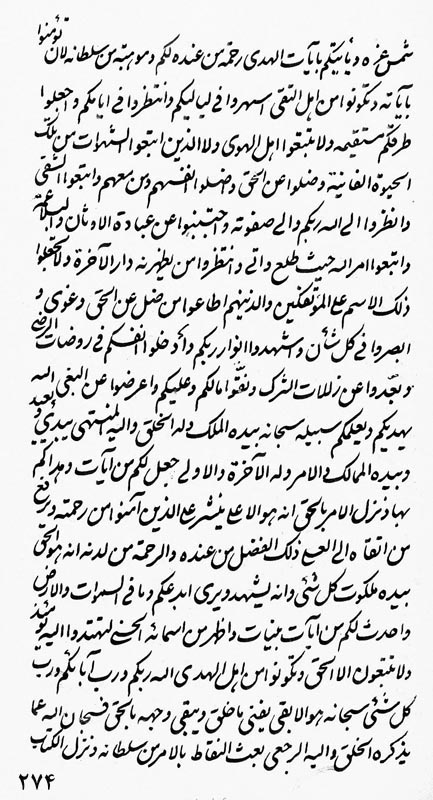 شمس عزه و یأتیکم بآیات الهدی رحمة من عنده لکم و موهبة من سلطانه لان تؤمنوا
بآیاته و تکونوا من اهل التقی اسهروا فی لیالیکم و انتظروا فی ایامکم و اجعلوا
طرقکم مستقیمه و لا تتبعوا اهل الهوی و لا الذین اتبعوا الشهوات من تلک
الحیوة الفانیة و ضلوا عن الحق و ضلوا انفسهم و من معهم و اتبعوا الشقی
و انظروا الی الله ربکم و الی صفوته و اجتنبوا عن عبادة الاوثان و
و اتبعوا امر الله حیث طلع و اتی و انتظروا من یظهرنه دار الآخرة و لا تجعلوا
ذلک الاسم علی المؤتفکین و الذینهم اطاعوا من ضل عن الحق و غوی و
ابصروا فی کل شأن و استشهدوا انوار ربکم و أدخلوا انفسکم فی روضات الرضی
و بعدوا عن زلات الترک و نقوا امالکم و علیکم و اعرضوا عن البغی الله
یهدیکم و یعلمکم سبیله سبحانه بیده الملک و له الخلق و الیه المنتهی یبدئ و یعید
و بیده الممالک و الامر و له الآخرة و الاولی جعل لکم من آیات و هداکم
بها و نزل الامر بالحق انه هو الاعلی ینشر علی الذین آمنوا من رحمته و یرفع
من اتقاه الی العلی ذلک الفضل من عنده و الرحمة من لدنه انه هو الحق
بیده ملکوت کل شئ و انه یشهد و یری ابدعکم و ما فی السموات و الارض
و احدث لکم من آیات بینات و اظهر من اسمائه الحسنی لتهتدوا الیه
و لا تتبعون الا الحق و تکونوا من اهل الهدی الله ربکم و رب آبائکم و رب
کل شئ سبحانه هو الابقی یفنی ما خلق و یبقی وجهه بالحق فسبحان الله عما
یذکره الخلق و الیه الرجعی بعث النقاط بالامر من سلطانه و نزل الکتاب
۲۷۴